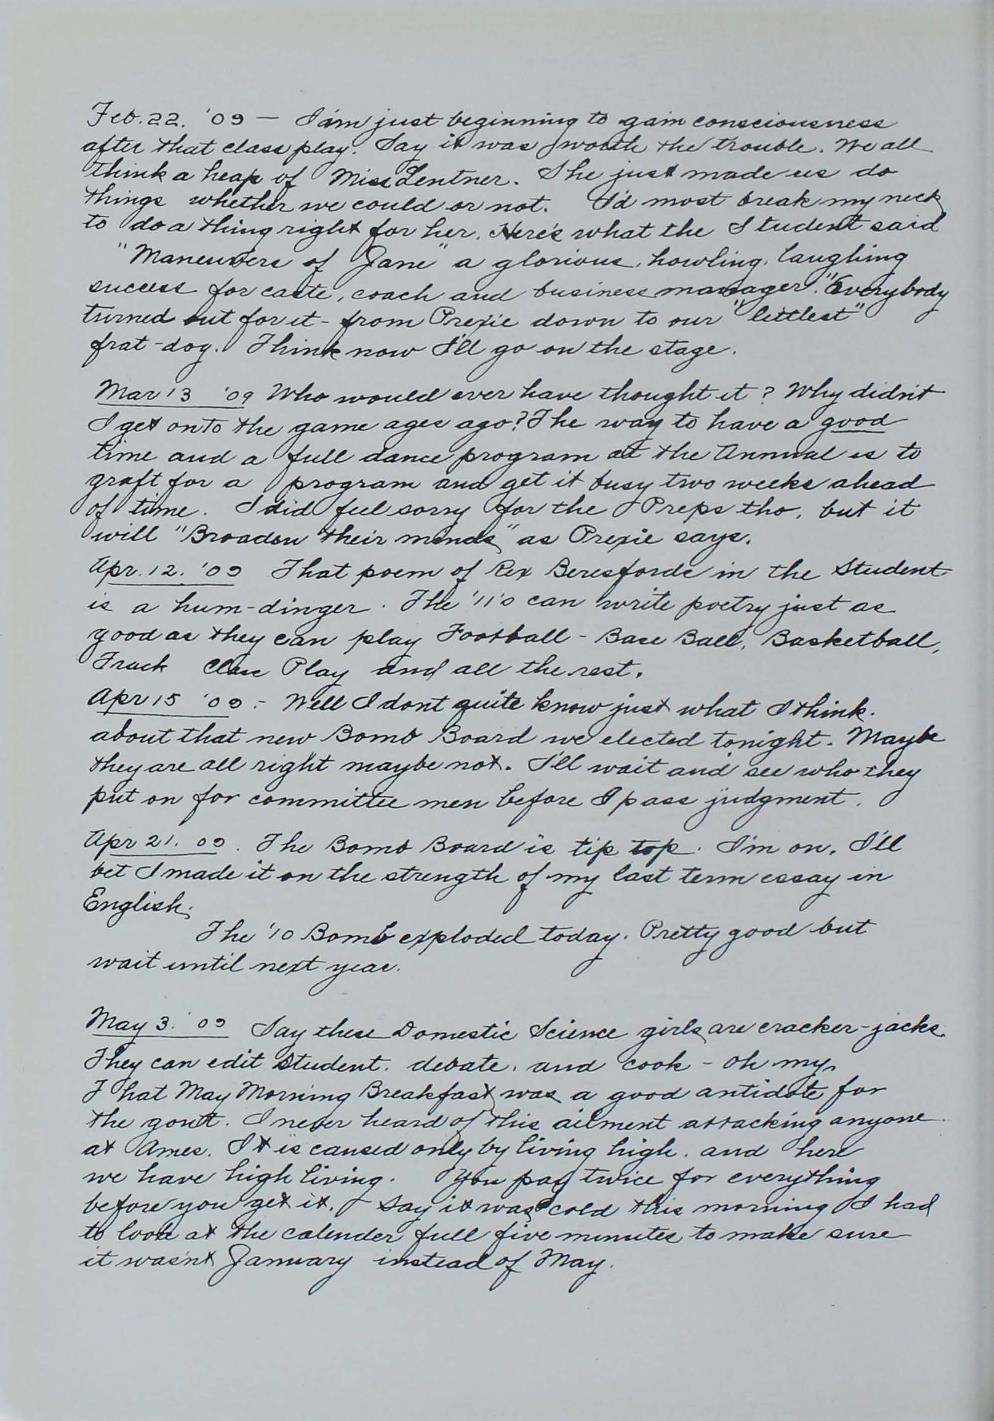 Feb. 22. '09 — I'am just beginning to gain consciousness
after that class play. Say it was worth the trouble. We all
think a heap of Miss Lentner. She just made us do
things whether we could or not. I'd most break my neck
to do a thing right for her. Here's what the Student said
"Maneuvers of Jane" a glorious, howling, laughing
success for caste, coach and business manager". Everybody
turned out for it - from Prexie down to our "littlest"
frat-dog. Think now I'll go on the stage.
Mar 13 '09 Who would ever have thought it? Why didn't
I get onto the game ages ago? The way to have a good
time and a full dance program at the Annual is to
graft for a program and get it busy two weeks ahead
of time. I did feel sorry for the Preps tho, but it
will "Broaden their minds" as Prexie says.
Apr. 12. '09 That poem of Rex Beresfords in the Student
is a hum-dinger. The '11's can write poetry just as
good as they can play Football - Base Ball, Basketball,
Track Class Play and all the rest.
Apr 15 '09 - Well I dont quite know just what I think.
about that new Bomb Board we elected tonight. Maybe
they are all right maybe not. I'll wait and see who they
put on for committee men before I pass judgment.
Apr 21. 09. The Bomb Board is tip top. I'm on. I'll
bet I made it on the strength of my last term essay in
English.
The '10 Bomb exploded today. Pretty good but
wait until next year.
May 3. '09 Say these Domestic Science girls are cracker-jacks.
They can edit Student, debate, and cook - oh my.
That May Morning Breakfast was a good antidote for
the goutt. I never heard of this ailment attacking anyone
at Ames. It is caused only by living high, and here
we have high living. You pay twice for everything
before you get it. Say it was cold this morning I had
to look at the calender full five minutes to make sure
it wasn't January instead of May.